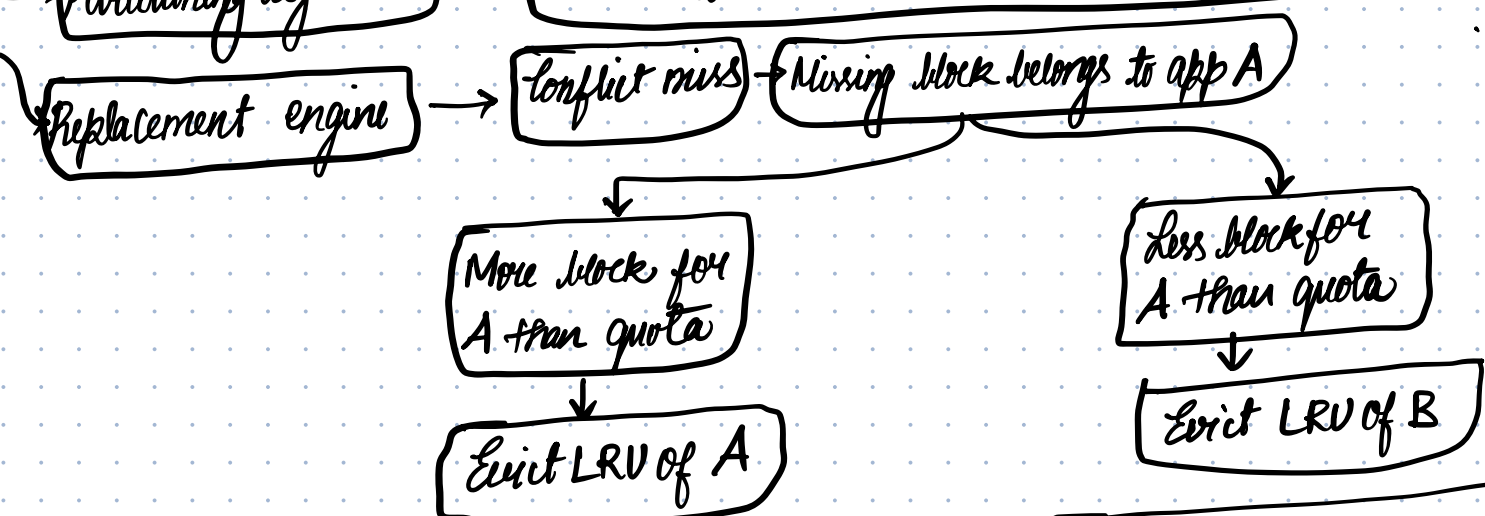 Replacement engine
Conflict miss
Missing block belongs to app A
More block for
A than quota
Less block for
A than quota
Evict LRU of A
Evict LRU of B